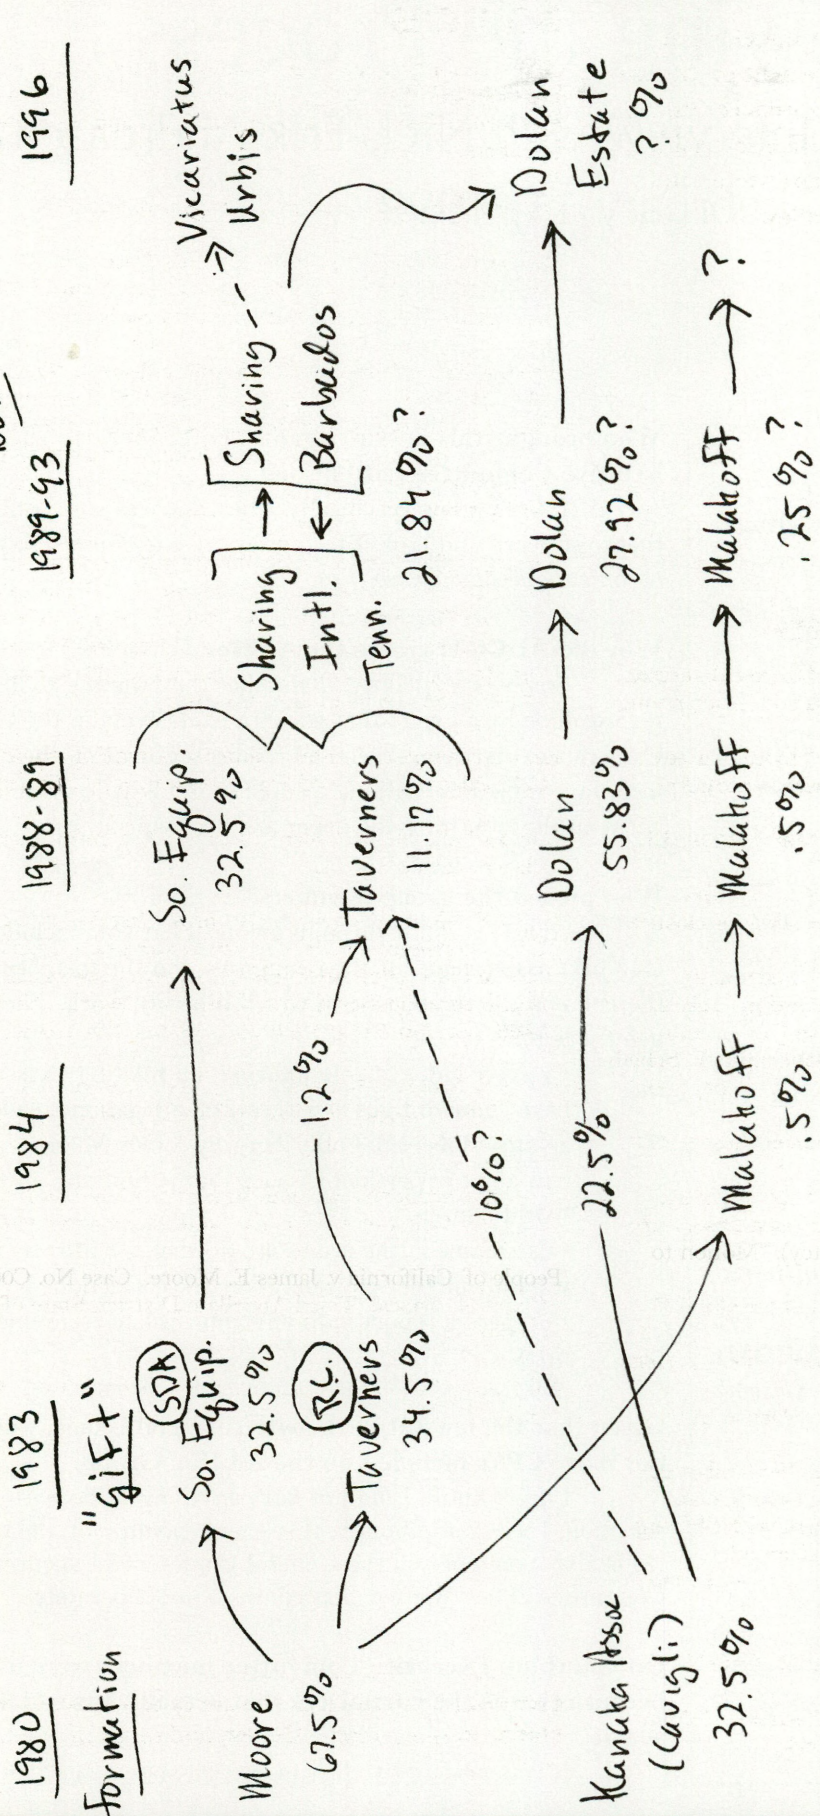 1980
Formation
Moore
67.5%
Kanaka Assoc
(Cavigli)
32.5%
1983
"gift"
SDA
So. Equip.
32.5%
R.C.
Taverners
34.5%
1984
1.2%
10%?
22.5%
Malahoff
.5%
1988-89
So. Equip
32.5%
Taverners
11.17%
Dolan
55.83%
Malahoff
.5%
1989-93
Sharing
Intl.
Tenn.
Sharing
Barbados
21.84%?
Dolan
27.92%?
Malahoff
.25%?
1996
Vicariatus
Urbis
Dolan
Estate
?%
?
People of California v. James E. Moore, Case No. Co